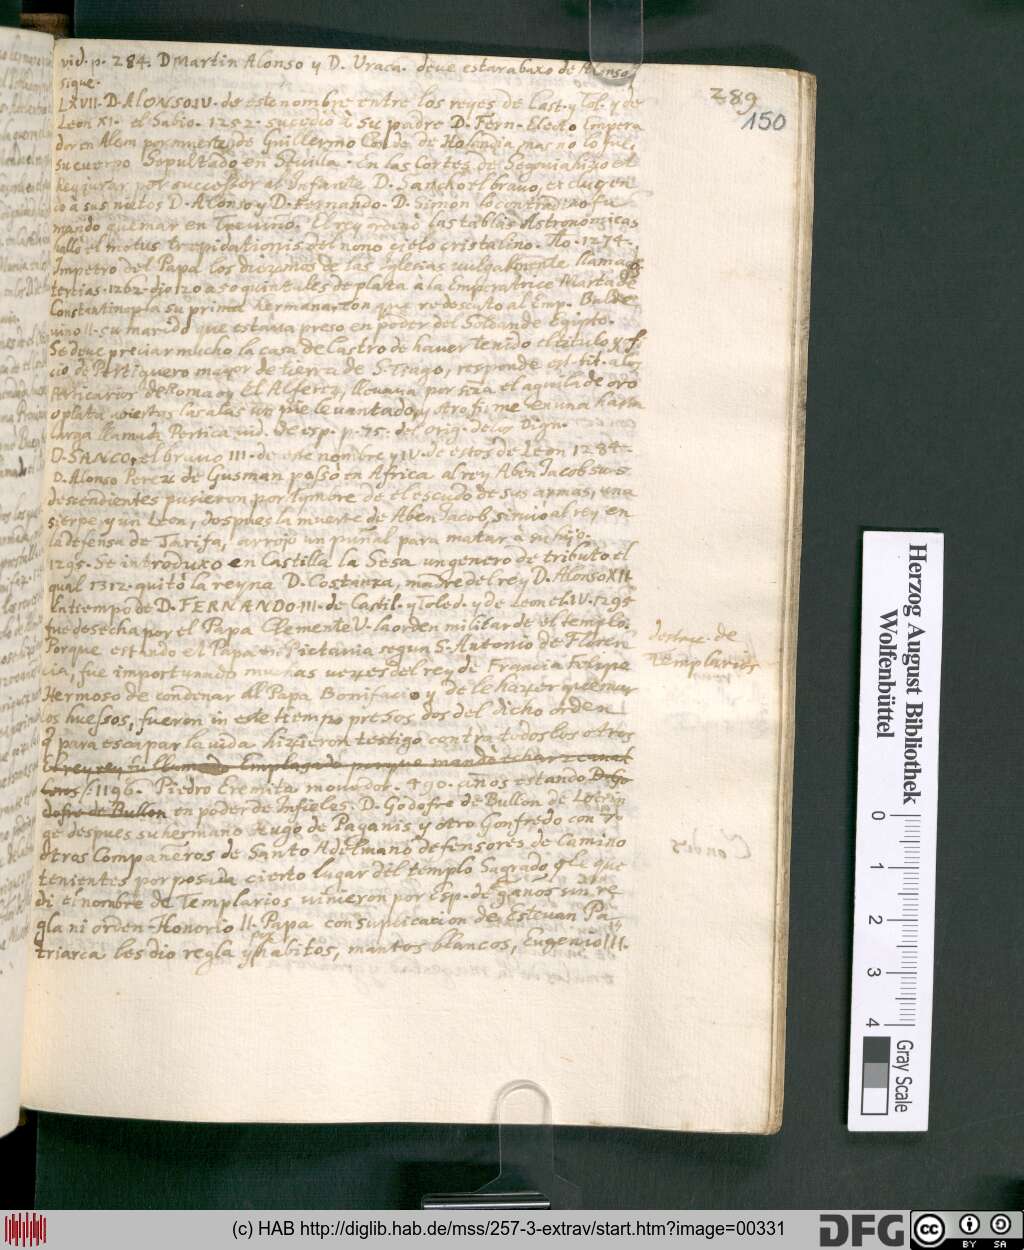 vid. p. 284. D Martin Alonso y D. Uraca. deve estar abaxo de Alonso
sigue.
LXVII. D. ALONSO IV. de este nombre entre los reyes de Cast. y Tol. y de
Leon XI. el Sabio. 1252. sucedio à su padre D. Fern. Electo Empera
dor en Alem por muerte de Guillermo Conde de Holandia, mas no lo fue,
su cuerpo sepultado en Sevilla. En las Cortes de Segovia hizo el
Rey jurar por successor al Infante D. Sancho el bravo, excluyen
do à sus nietos D. Alonso y D. Fernando. D. Simon lo contradixo fue
mando quemar en Trevino. El rey ordenò las tablas Astronomicas
hallò el motus trepidationis del nono cielo cristalino. Ao. 1274.
Impetro del Papa los diezmos de las Iglesias vulgalmente llamados
tercias. 1262. dio 20 a 50 quintales de plata à la Emperatrice Marta de
Constantinopla su prima hermana. con que rescato al Emp. Baldo
vino II. su marido que estava preso en poder del Soldan de Egipto.
Se deve preciar mucho la casa de Castro de haver tenido el titulo & ofi
cio de Pertiguero mayor de tierra de S. Tiago, responde est. tit. a los
Particarios de Roma y El Alferez, llevava por seña el aquila de oro
o plata abiertas las alas un pie levantado, y otro firme en una hasta
larga llamada Pertica vid. de esp. p. 75. del orig. de las Dign.
D. SANCO, el bravo III. de este nombre y IV. de estos de Leon 1284.
D. Alonso Perez de Gusman passò en Africa al rey Aben Jacob sus
descendientes pusieron por tymbre de el escudo de sus armas, una
sierpe y un Leon, dospues la muerte de Aben Jacob, sirvio al rey en
la defensa de Tarifa, arrojò un puñal para matar à su hijo.
1295. Se introduxo en Castilla la Sesa un genero de tributo el
qual 1312. quitò la reyna D. Costanza, madre del rey D. Alonso XII.
En tiempo de D. FERNANDO III. de Castil. y Toled. y de Leon el IV. 1295
fue desecha por el Papa Clemente V. la orden militar de el templo.
Porque estando el Papa en Pictavia segun S. Antonio de Floren
cia, fue importunado muchas vezes del rey de Francia Felipe
Hermoso de condenar al Papa Bonifacio y de le hazer quemar
los huessos, fueron in este tiempo presos dos del dicho orden
q para escapar la vida hizieron testigo contra todos los otros
El rey fu llamado Emplazado porque mandò echar
1196. Piedro Eremita movedor. 490. años estando D. Go
dofre de Bullon en poder de Infieles. D. Godofre de Bullon de Lotrin
ge despues su hermano Hugo de Paganis y otro Gonfredo con 7.
otros Compañeros de Santo Adelmano defensores de Camino
tenientes por posada cierto lugar del templo Sagrado q le que
di el nombre de Templarios viñieron por Esp. de 9 años sin re
gla ni orden. Honorio II. Papa con suplicacion de Estevan Pa
triarca les dio regla y habitos, mantos blancos, Eugenio III.
289
150
destruc. de
Templarios
Herzog August Bibliothek
Wolfenbüttel
0 1 2 3 4
Gray Scale
(c) HAB http://diglib.hab.de/mss/257-3-extrav/start.htm?image=00331
DFG
cc BY SA